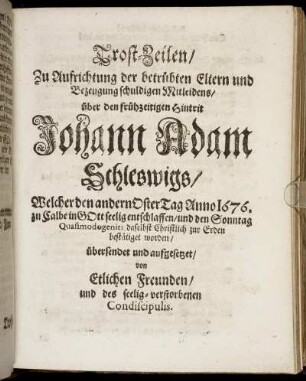 Trost-Zeilen/
Zu Aufrichtung der betrübten Eltern und
Bezeugung schuldigen Mitleidens/
über den frühzeitigen Hintrit
Johann Adam
Schleswigs/
Welcher den andern OsterTag Anno 1676.
zu Calbe in GOtt seelig entschlaffen/und den Sonntag
Quasimodogenit: daselbst Christlich zur Erden
bestätiget worden/
übersendet und auffgesetzet/
von
Etlichen Freunden/
und des seelig-verstorbenen
Condiscipulis.